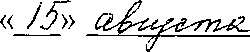 « 15 » августа